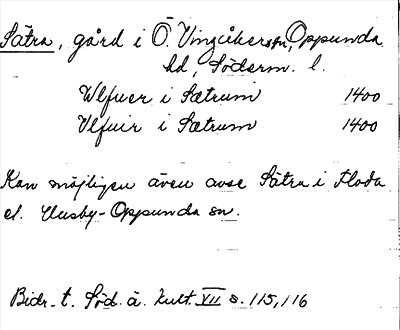 Sätra, gård i Ö. Vingåkers sn, Oppunda
hd, Söderm. l.
Wlfuer i Sætrum 1400
Vlfuir i Sætrum 1400
Kan möjligen även avse Sätra i Floda
el. Husby-Oppunda sn.
Bidr. t. Söd. ä. kult. VII s. 115, 116